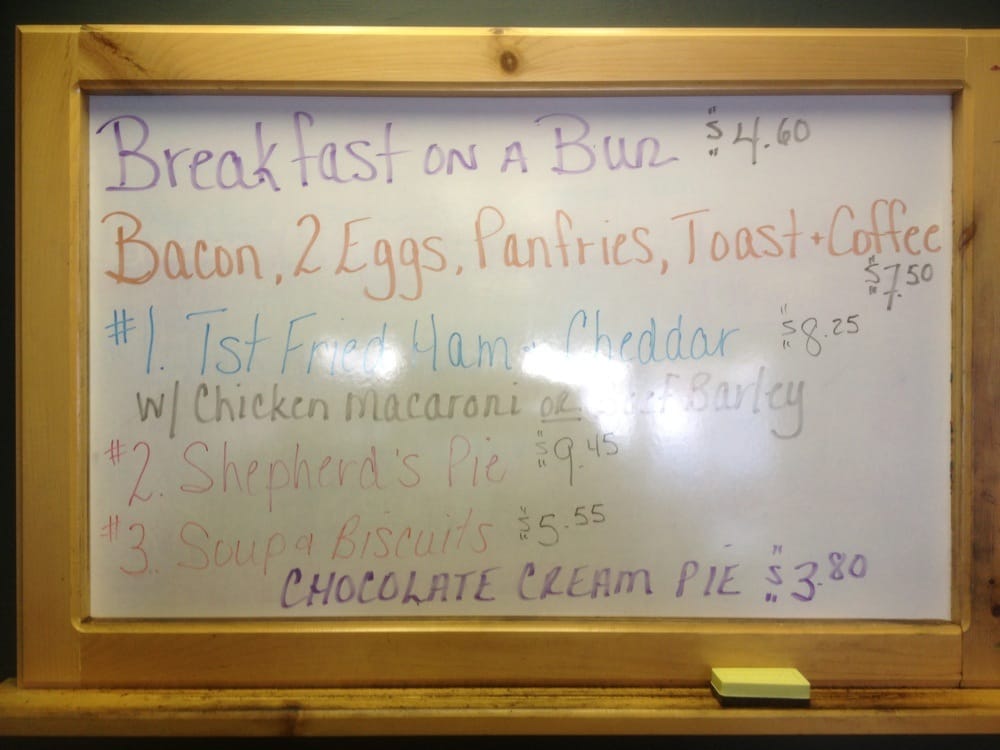 Breakfast ON A Bun $4.60
Bacon, 2 Eggs, Panfries, Toast + Coffee
$7.50
#1. Tst Fried Ham & Cheddar $8.25
w/ Chicken macaroni OR Beef Barley
#2. Shepherd's Pie $9.45
#3. Soup & Biscuits $5.55
CHOCOLATE CREAM PIE $3.80